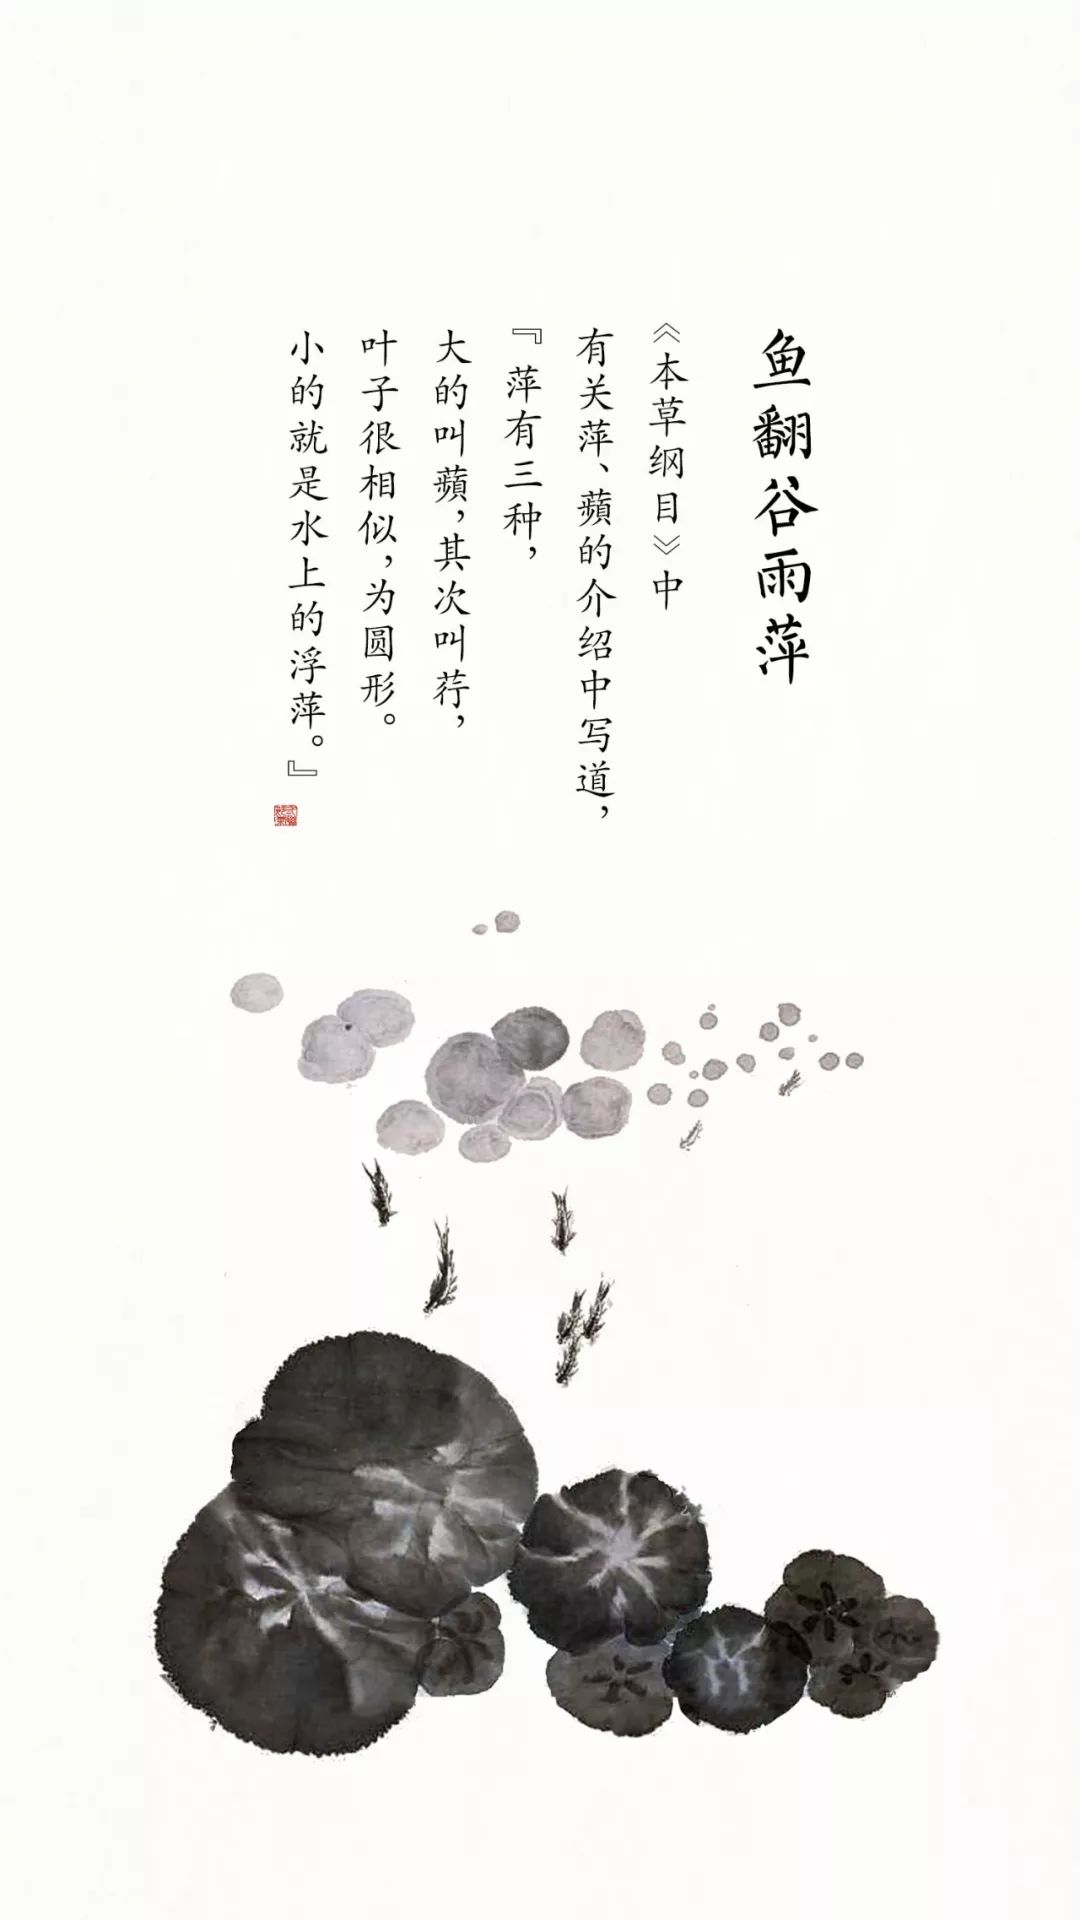 鱼翻谷雨萍
《本草纲目》中
有关萍、蘋的介绍中写道，
『萍有三种，
大的叫蘋，其次叫荇，
叶子很相似，为圆形。
小的就是水上的浮萍。』